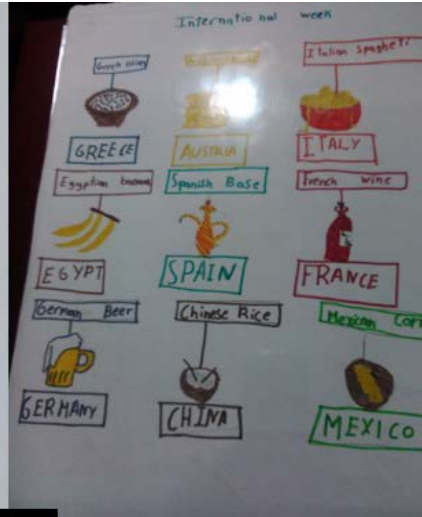 International week
Greek olives
Italian Spagheti
GREECE
AUSTRIA
ITALY
Egyptian banana
Spanish Base
French wine
EGYPT
SPAIN
FRANCE
German Beer
Chinese Rice
Mexican Corn
GERMANY
CHINA
MEXICO